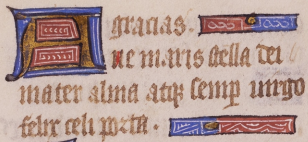 gracias.
Ave maris stella dei
mater alma atq; semp uirgo
felix celi porta.